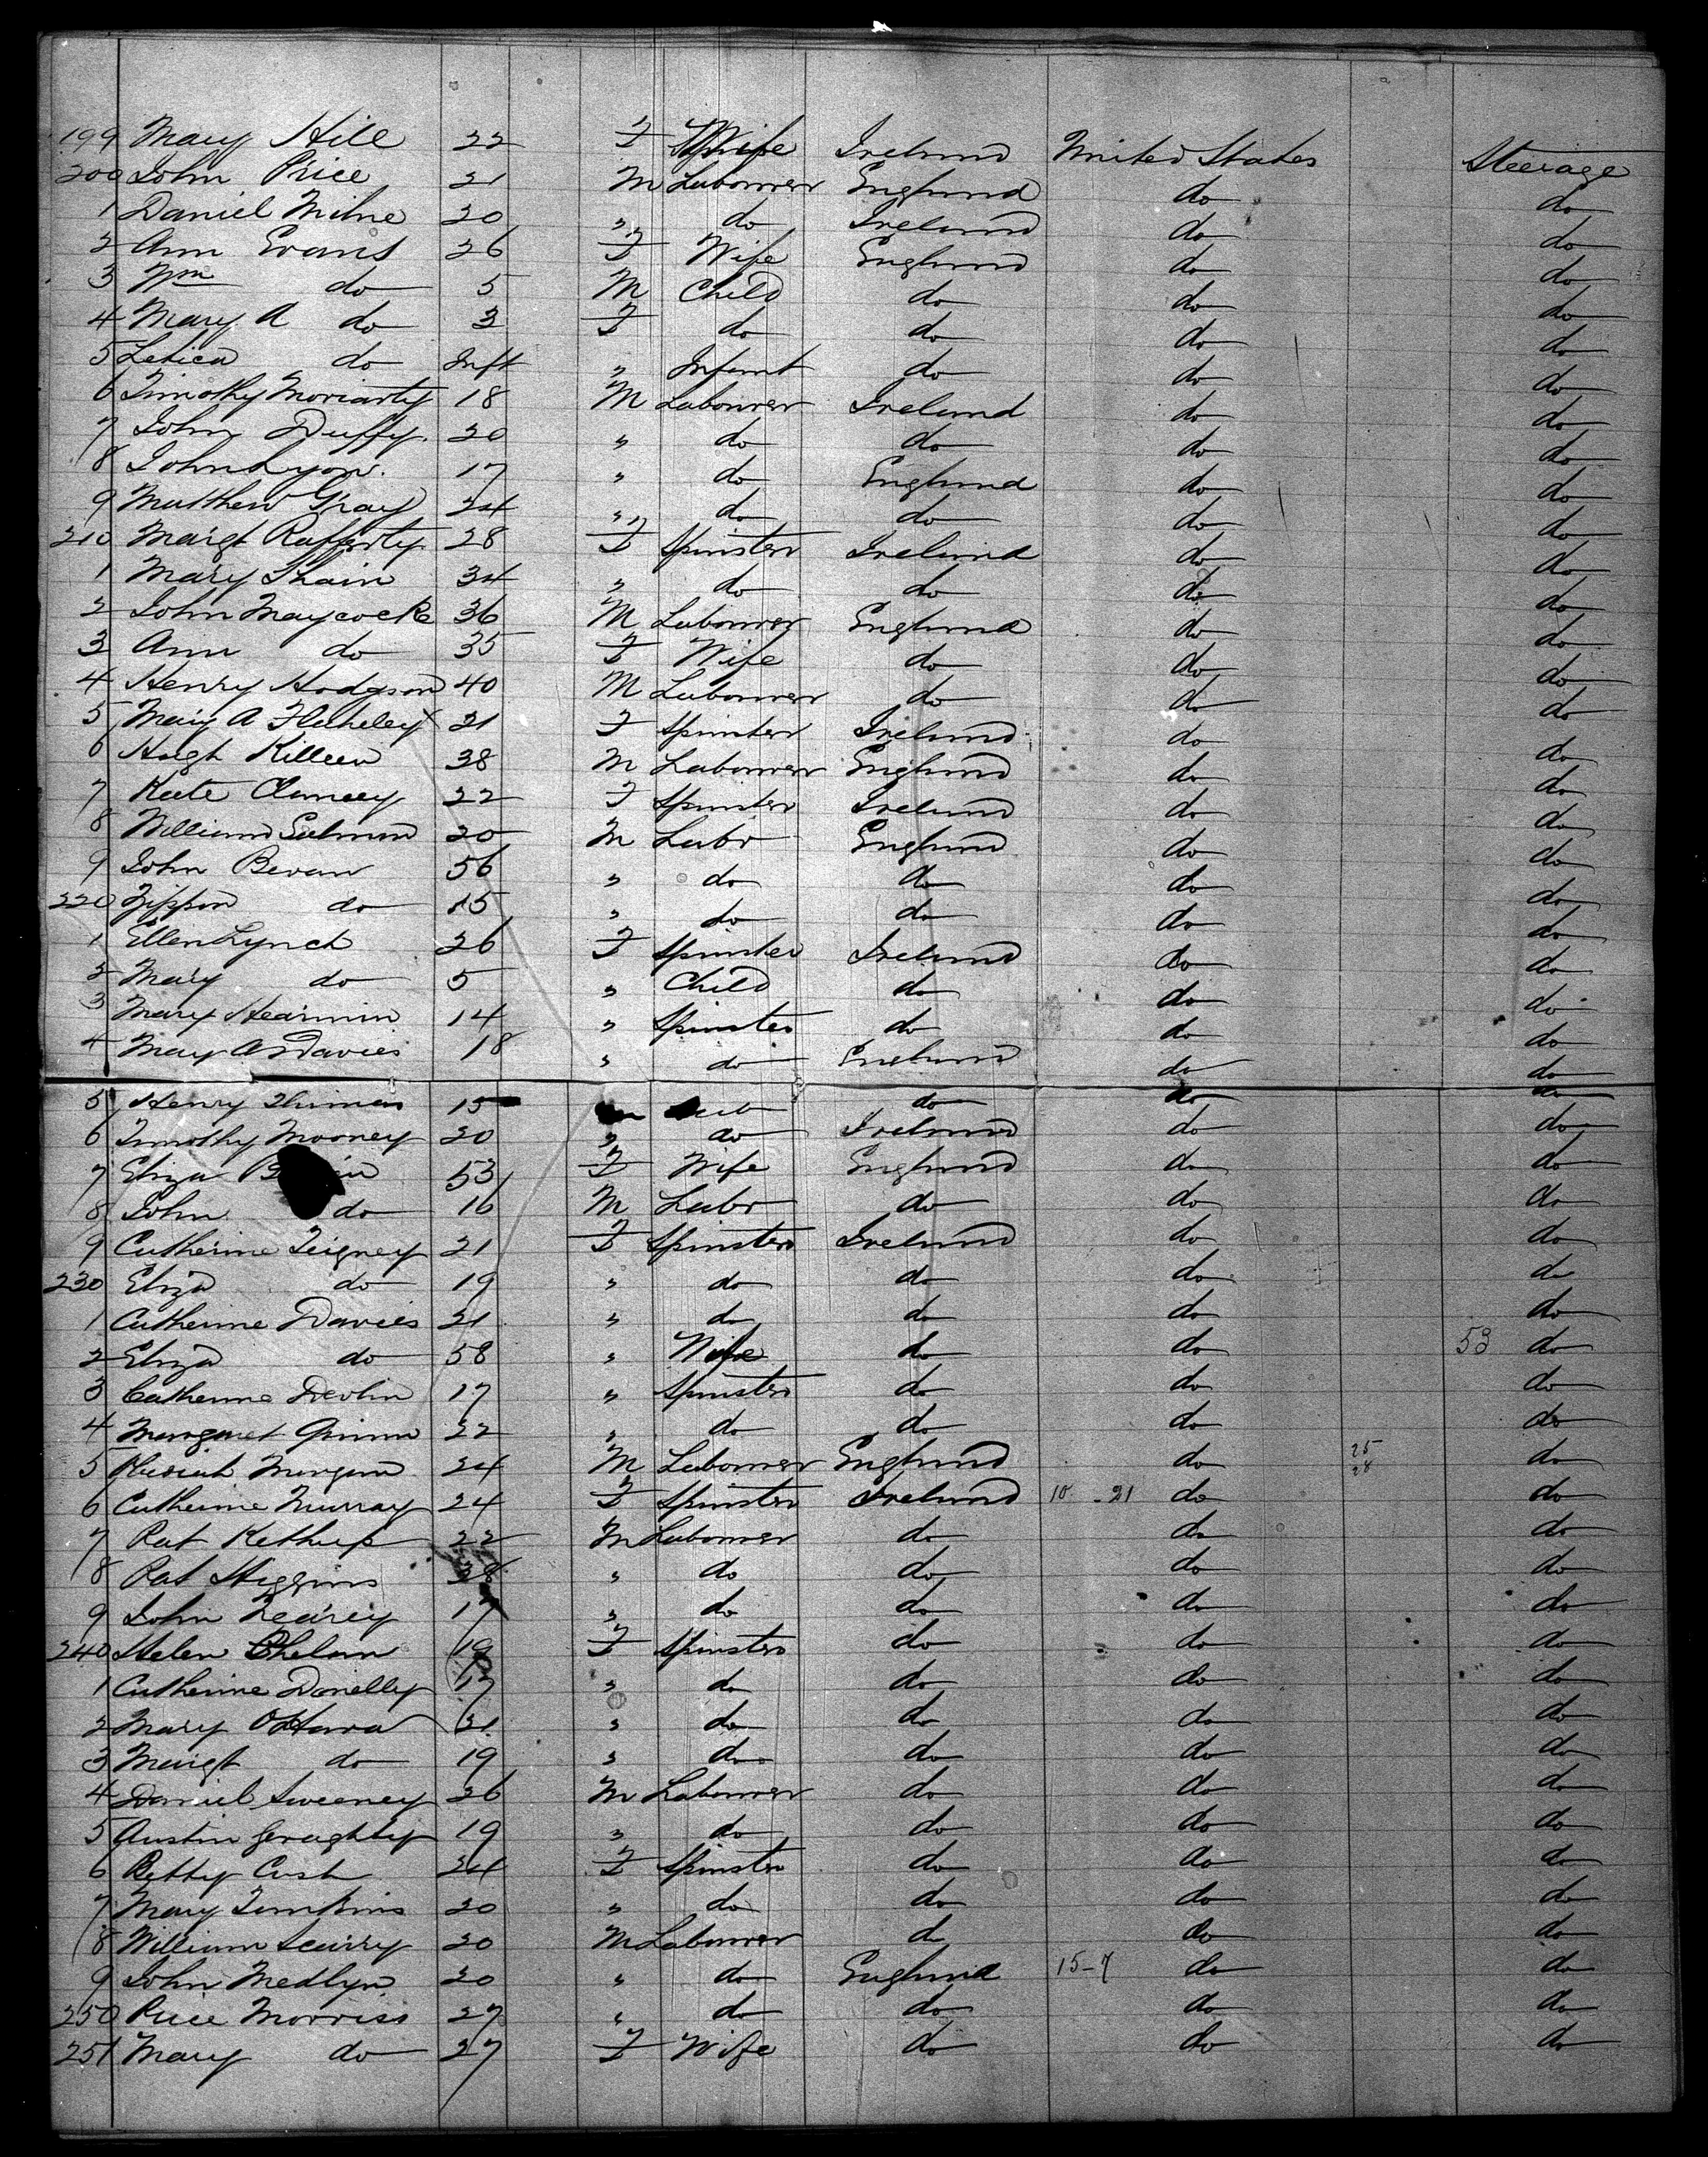 199 Mary Hill 22 F Wife Ireland United States Steerage
200 John Price 21 M Labourer England do do
1 Daniel Milne 20 " do Ireland do do
2 Ann Evans 26 F Wife England do do
3 Wm do 5 M Child do do do
4 Mary A do 3 F do do do do
5 Letica do Inft " Infant do do do
6 Timothy Moriarty 18 M Labourer Ireland do do
7 John Duffy 20 " do do do do
8 John Lyon 17 " do England do do
9 Matthew Gray 24 " do do do do
210 Margt Rafferty 28 F Spinster Ireland do do
1 Mary Shain 34 " do do do do
2 John Maycock 36 M Labourer England do do
3 Ann do 35 F Wife do do do
4 Henry Hodgson 40 M Labourer do do do
5 Mary A 21 F Spinster Ireland do do
6 Hugh Killeen 38 M Labourer England do do
7 Kate Clancey 22 F Spinster Ireland do do
8 William Salmon 20 M Labr England do do
9 John Bevan 56 " do do do do
220 do 15 " do do do do
1 Ellen Lynch 26 F Spinster Ireland do do
2 Mary do 5 " Child do do do
3 Mary 14 " Spinster do do do
4 Mary A Davies 18 " do England do do
5 Henry Thomas 15 do do do
6 Timothy Mooney 20 " do Ireland do do
7 Eliza 53 F Wife England do do
8 John do 16 M Labr do do do
9 Catherine Teigney 21 F Spinster Ireland do do
230 Eliza do 19 " do do do do
1 Catherine Davies 21 " do do do do
2 Eliza do 58 " Wife do do 53 do
3 Catherine Devlin 17 " Spinster do do do
4 Margaret Quinn 22 " do do do do
5 Morgan 24 M Labourer England do 25 28 do
6 Catherine Murray 24 F Spinster Ireland 10 - 21 do do
7 Pat 22 M Labourer do do do
8 Pat Higgins " do do do do
9 John 17 " do do do do
240 Helen Phelan 19 F Spinster do do do
1 Catherine Donelly 17 " do do do do
2 Mary OHara 21 " do do do do
3 Margt do 19 " do do do do
4 Daniel Sweeney 26 M Labourer do do do
5 Austin Geraghty 19 " do do do do
6 Betty Cush 24 F Spinster do do do
7 Mary Timkins 20 " do do do do
8 William Scurry 20 M Labourer d do do
9 John Medlyn 20 " do England 15-7 do do
250 Price Morriss 27 " do do do do
251 Mary do 27 F Wife do do do